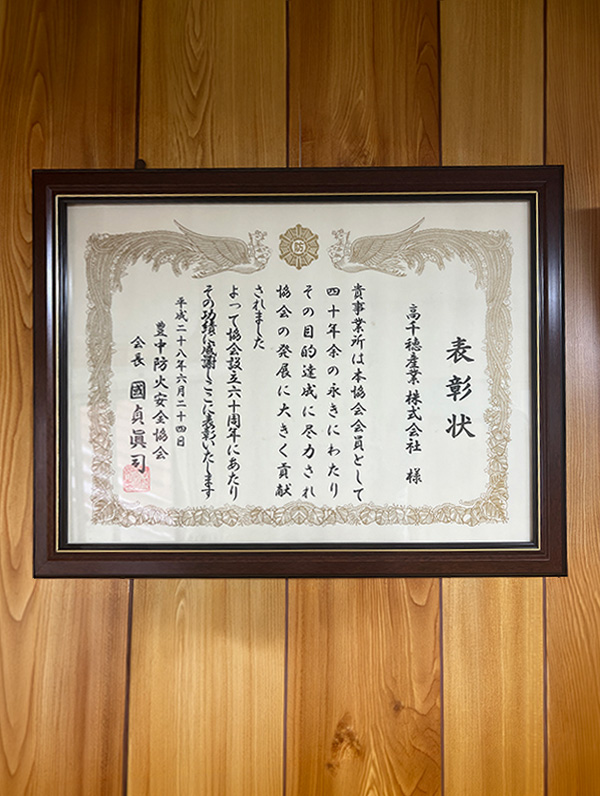 防
表彰状
高千穂産業株式会社 様
貴事業所は本協会会員として
四十年余の永きにわたり
その目的達成に尽力され
協会の発展に大きく貢献
されました
よって協会設立六十周年にあたり
その功績に感謝しここに表彰いたします
平成二十八年六月二十四日
豊中防火安全協会
会長 國貞眞司